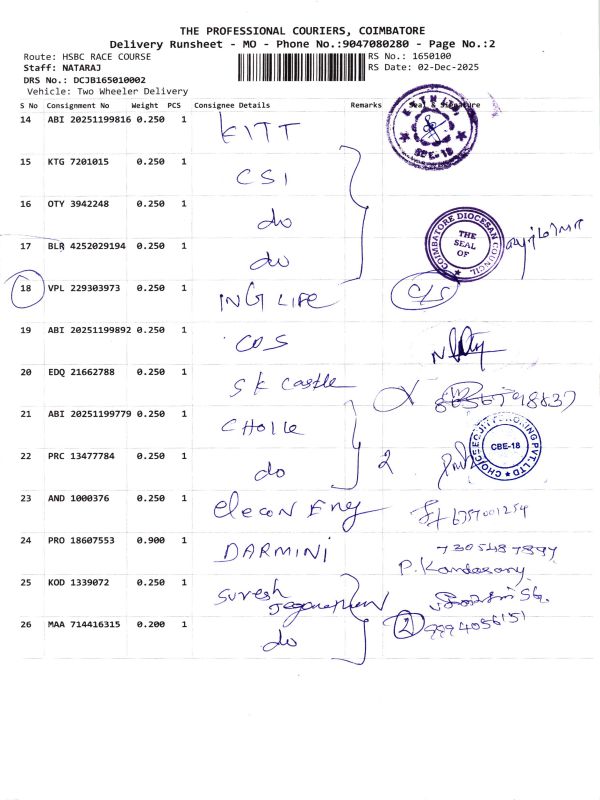 THE PROFESSIONAL COURIERS, COIMBATORE
Delivery Runsheet - MO - Phone No.:9047080280 - Page No.:2
Route: HSBC RACE COURSE
RS No.: 1650100
Staff: NATARAJ
RS Date: 02-Dec-2025
DRS No.: DCJB165010002
Vehicle: Two Wheeler Delivery
S No Consignment No Weight PCS Consignee Details Remarks Seal & Signature
14 ABI 20251199816 0.250 1 KITT
15 KTG 7201015 0.250 1 CSI
16 OTY 3942248 0.250 1 do
COIMBATORE DIOCESAN COUNCIL
THE SEAL OF
17 BLR 4252029194 0.250 1 do
18 VPL 229303973 0.250 1 ING LIFE C/S
19 ABI 20251199892 0.250 1 COS
20 EDQ 21662788 0.250 1 SK Castle
21 ABI 20251199779 0.250 1
CBE-18
22 PRC 13477784 0.250 1 do 2
23 AND 1000376 0.250 1 elecon Eng 6757001254
24 PRO 18607553 0.900 1 DARMINI 7305487897
P. Kandasamy
25 KOD 1339072 0.250 1 Suresh
26 MAA 714416315 0.200 1 do 2 9994056151